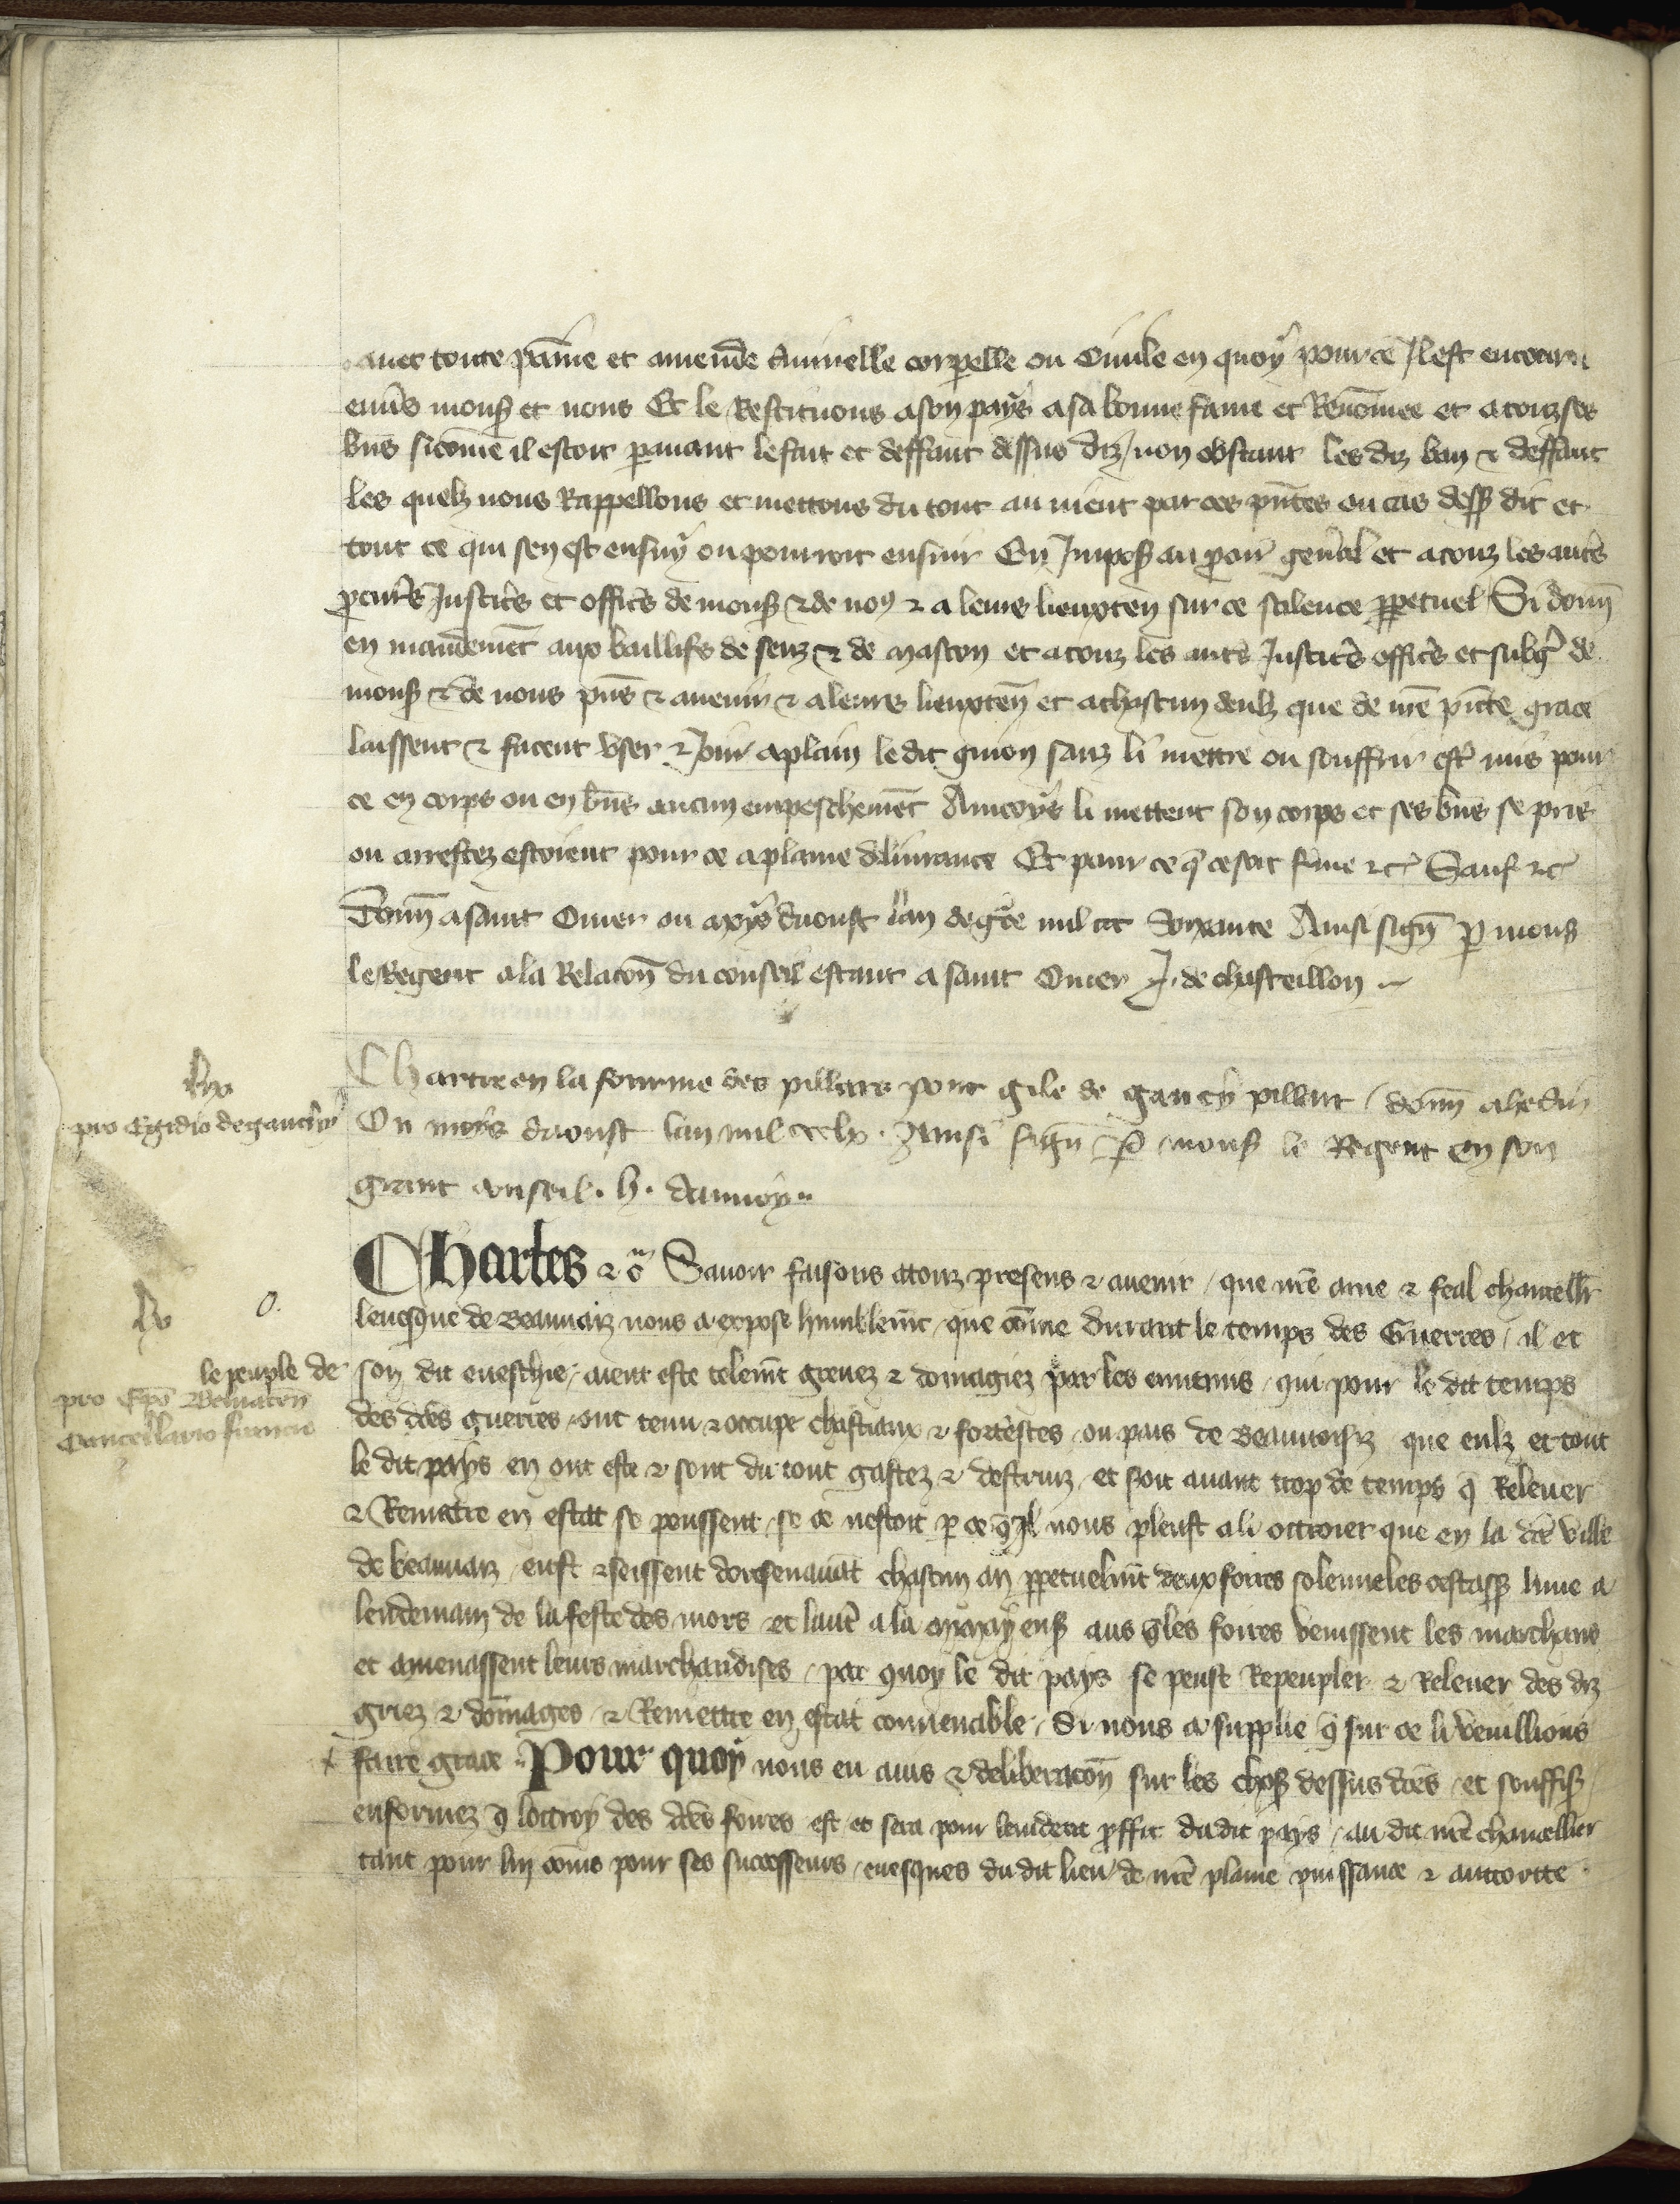 avec toute painne et amende criminelle corpelle ou Civile en quoy pour ce Il est encouru
enuers monss et nous Et le Restituons a son pays a sa bonne fame et Renommee et a touz ses
bns sicome il estoit pauant le fait et deffaut dessus diz / non obstant les diz ban & deffaut
les quelz nous Rappellons et mettons du tout au nient par ces pntes ou cas dess dit et
tout ce qui sen est ensuy ou pourroit ensuir En Imposs au pcur genal et a touz les autes
pcurs Justices et offices de monss & de nos & a leurs lieuxten sur ce scilence ppetuel Si donn
en mandement aux baillifs de senz & de mascon et a touz les autes Justices offices et subgz de
monss & de nous pns & auenir & a leurs lieuxten et a chascun deulz que de nre pnte grace
laissent & facent vser & Joir a plain le dit guion sanz li mettre ou souffrir estre mis pour
ce en corps ou en bns aucun empeschement Aincoys li mettent son corps et ses bns se pris
ou arrestez estoient pour ce a plaine deliurance Et pour ce q ce soit ferme &c Sauf &c
Donn a saint Omer ou moys daoust lan de gce mil ccc Soixante Ainsi sign p monss
le Regent a la Relacon du conseil estant a saint Omer J. de chasteillon
lix
pro Egidio de gauchy
Chartre en la fourme des pillars pour gile de gauchy pillart / donn a hedin
Ou moys daoust lan mil ccclx. Ainsi sign P monss le Regent en son
grant conseil. h. dannoy
lx
o.
Charles &c Sauoir faisons a touz presens & auenir / que nre ame & feal chancellr
leuesque de Beauuaiz nous a expose humblemt / que come durant le temps des Guerres / il et
le peuple de
pro Epo Beluacen
Cancellario francie
son dit eueschie / aient este telemt greuez & domagiez par les ennemis / qui pour le dit temps
des dces guerres / ont tenu & occupe chastiaux & forteresces / ou pais de Beauuoisiz que eulz et tout
le dit pays en ont este & sont du tout gastez & destruiz / et soit auant trop de temps q Releuer
& Remettre en estat se peussent / se ce nestoit p ce q Il nous pleust a li octroier que en la dce ville
de beauuaiz / eust & seissent doresenauat chascun an ppetuelmt deux foires solenneles cestass lune a
lendemain de la feste des mors et laute a la my may enss aus qles foires venissent les marchans
et amenassent leurs marchandises / par quoy le dit pays se peust Repeupler & Releuer des diz
griez & domages / & Remettre en estat conuenable / Si nous a supplie q sur ce li veuillions
faire grace Pour quoy nous eu auis & deliberacon sur les choss dessus dces / et souffiss
enformez q lottroy des dces foires est et sera pour leuident proffit du dit pays / au dit nre chancellier
tant pour luy come pour ses successeurs / euesques du dit lieu / de nre plaine puissance & auctorite